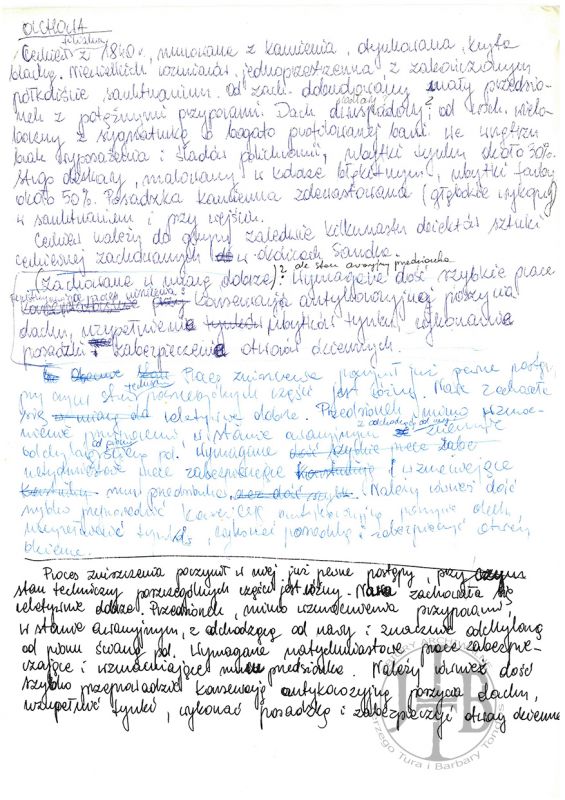 OLCHOWA
filialna
Cerkiew z 1840 r, murowana z kamienia, otynkowana, kryta
blachą. Niewielkich rozmiarów, jednoprzestrzenna, z zakończonym
półkoliście sanktuarium. Od zach. dobudowany mały przedsio-
nek z potężnymi przyporami. Dach dwuspadowy, od wsch. wielo-
połaciowy z sygnaturką o bogato profilowanej bani. We wnętrzu
brak wyposażenia i śladów polichromii, ubytki tynku około 30%.
Strop deskowy, malowany w kolorze błękitnym, ubytki farby
około 50%. Posadzka kamienna zdewastowana (głębokie wykopy)
w sanktuarium i przy wejściu.
Cerkiew należy do grupy zaledwie kilkunastu obiektów sztuki
cerkiewnej zachowanych w okolicach Sanoka.
(Zachowane w miarę dobrze)? ale stan awaryjny przedsionka
Wymagane dość szybkie prace
konserwacja antykorozyjna poszycia
dachu, uzupełnienie ubytków tynku, wykonanie
posadzki zabezpieczenie otworów okiennych.
Proces zniszczenia poczynił już pewne postępy,
przy czym stan techn. poszczególnych części jest różny. Nawa zachowała
się w miarę do relatywnie dobrze. Przedsionek, mimo wzmoc-
nienia przyporami, w stanie awaryjnym z odchodzącą od nawy znacznie
odchyloną od pionu ścianą pd. Wymagane dość szybkie prace zabez
natychmiastowe prace zabezpieczające i wzmacniające
mury przedsionka. Należy również dość
szybko przeprowadzić konserwację antykorozyjną poszycia dachu,
uzupełnić tynki, wykonać posadzkę i zabezpieczyć otwory
okienne.
Proces zniszczenia poczynił w niej już pewne postępy, przy czym
stan techniczny poszczególnych części jest różny. Nawa zachowała się
relatywnie dobrze. Przedsionek, mimo wzmocnienia przyporami,
w stanie awaryjnym, z odchodzącą od nawy i znacznie odchyloną
od pionu ścianą pd. Wymagane natychmiastowe prace zabezpie-
czające i wzmacniające mury przedsionka. Należy również dość
szybko przeprowadzić konserwację antykorozyjną poszycia dachu,
uzupełnić tynki, wykonać posadzkę i zabezpieczyć otwory okienne